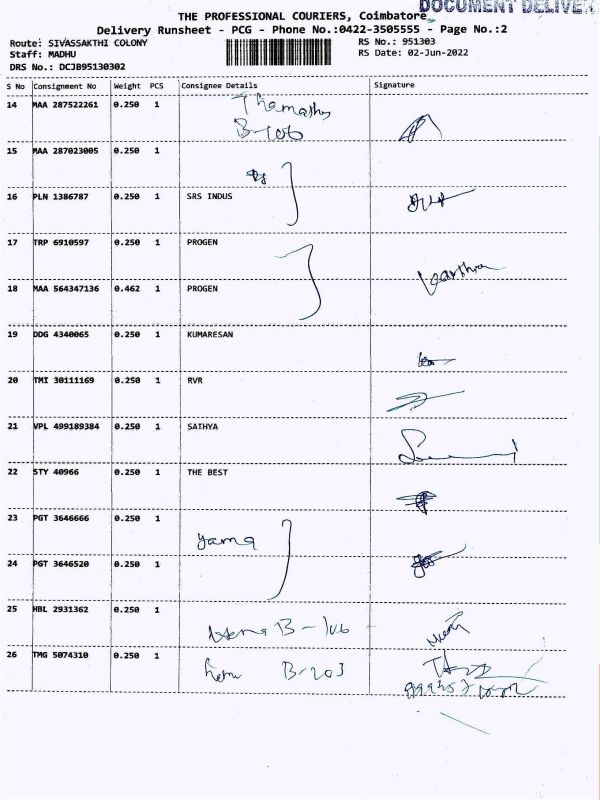 DOCUMENT DELIVER
THE PROFESSIONAL COURIERS, Coimbatore
Delivery Runsheet - PCG - Phone No.:0422-3505555 - Page No.:2
Route: SIVASSAKTHI COLONY RS No.: 951303
Staff: MADHU RS Date: 02-Jun-2022
DRS No.: DCJB95130302
S No Consignment No Weight PCS Consignee Details Signature
14 MAA 287522261 0.250 1
B-106
15 MAA 287023005 0.250 1
16 PLN 1386787 0.250 1 SRS INDUS
17 TRP 6910597 0.250 1 PROGEN
18 MAA 564347136 0.462 1 PROGEN
19 DDG 4340065 0.250 1 KUMARESAN
20 TMI 30111169 0.250 1 RVR
21 VPL 499189384 0.250 1 SATHYA
22 STY 40966 0.250 1 THE BEST
23 PGT 3646666 0.250 1
yama
24 PGT 3646520 0.250 1
25 HBL 2931362 0.250 1
B-106
26 TMG 5074310 0.250 1
B-203